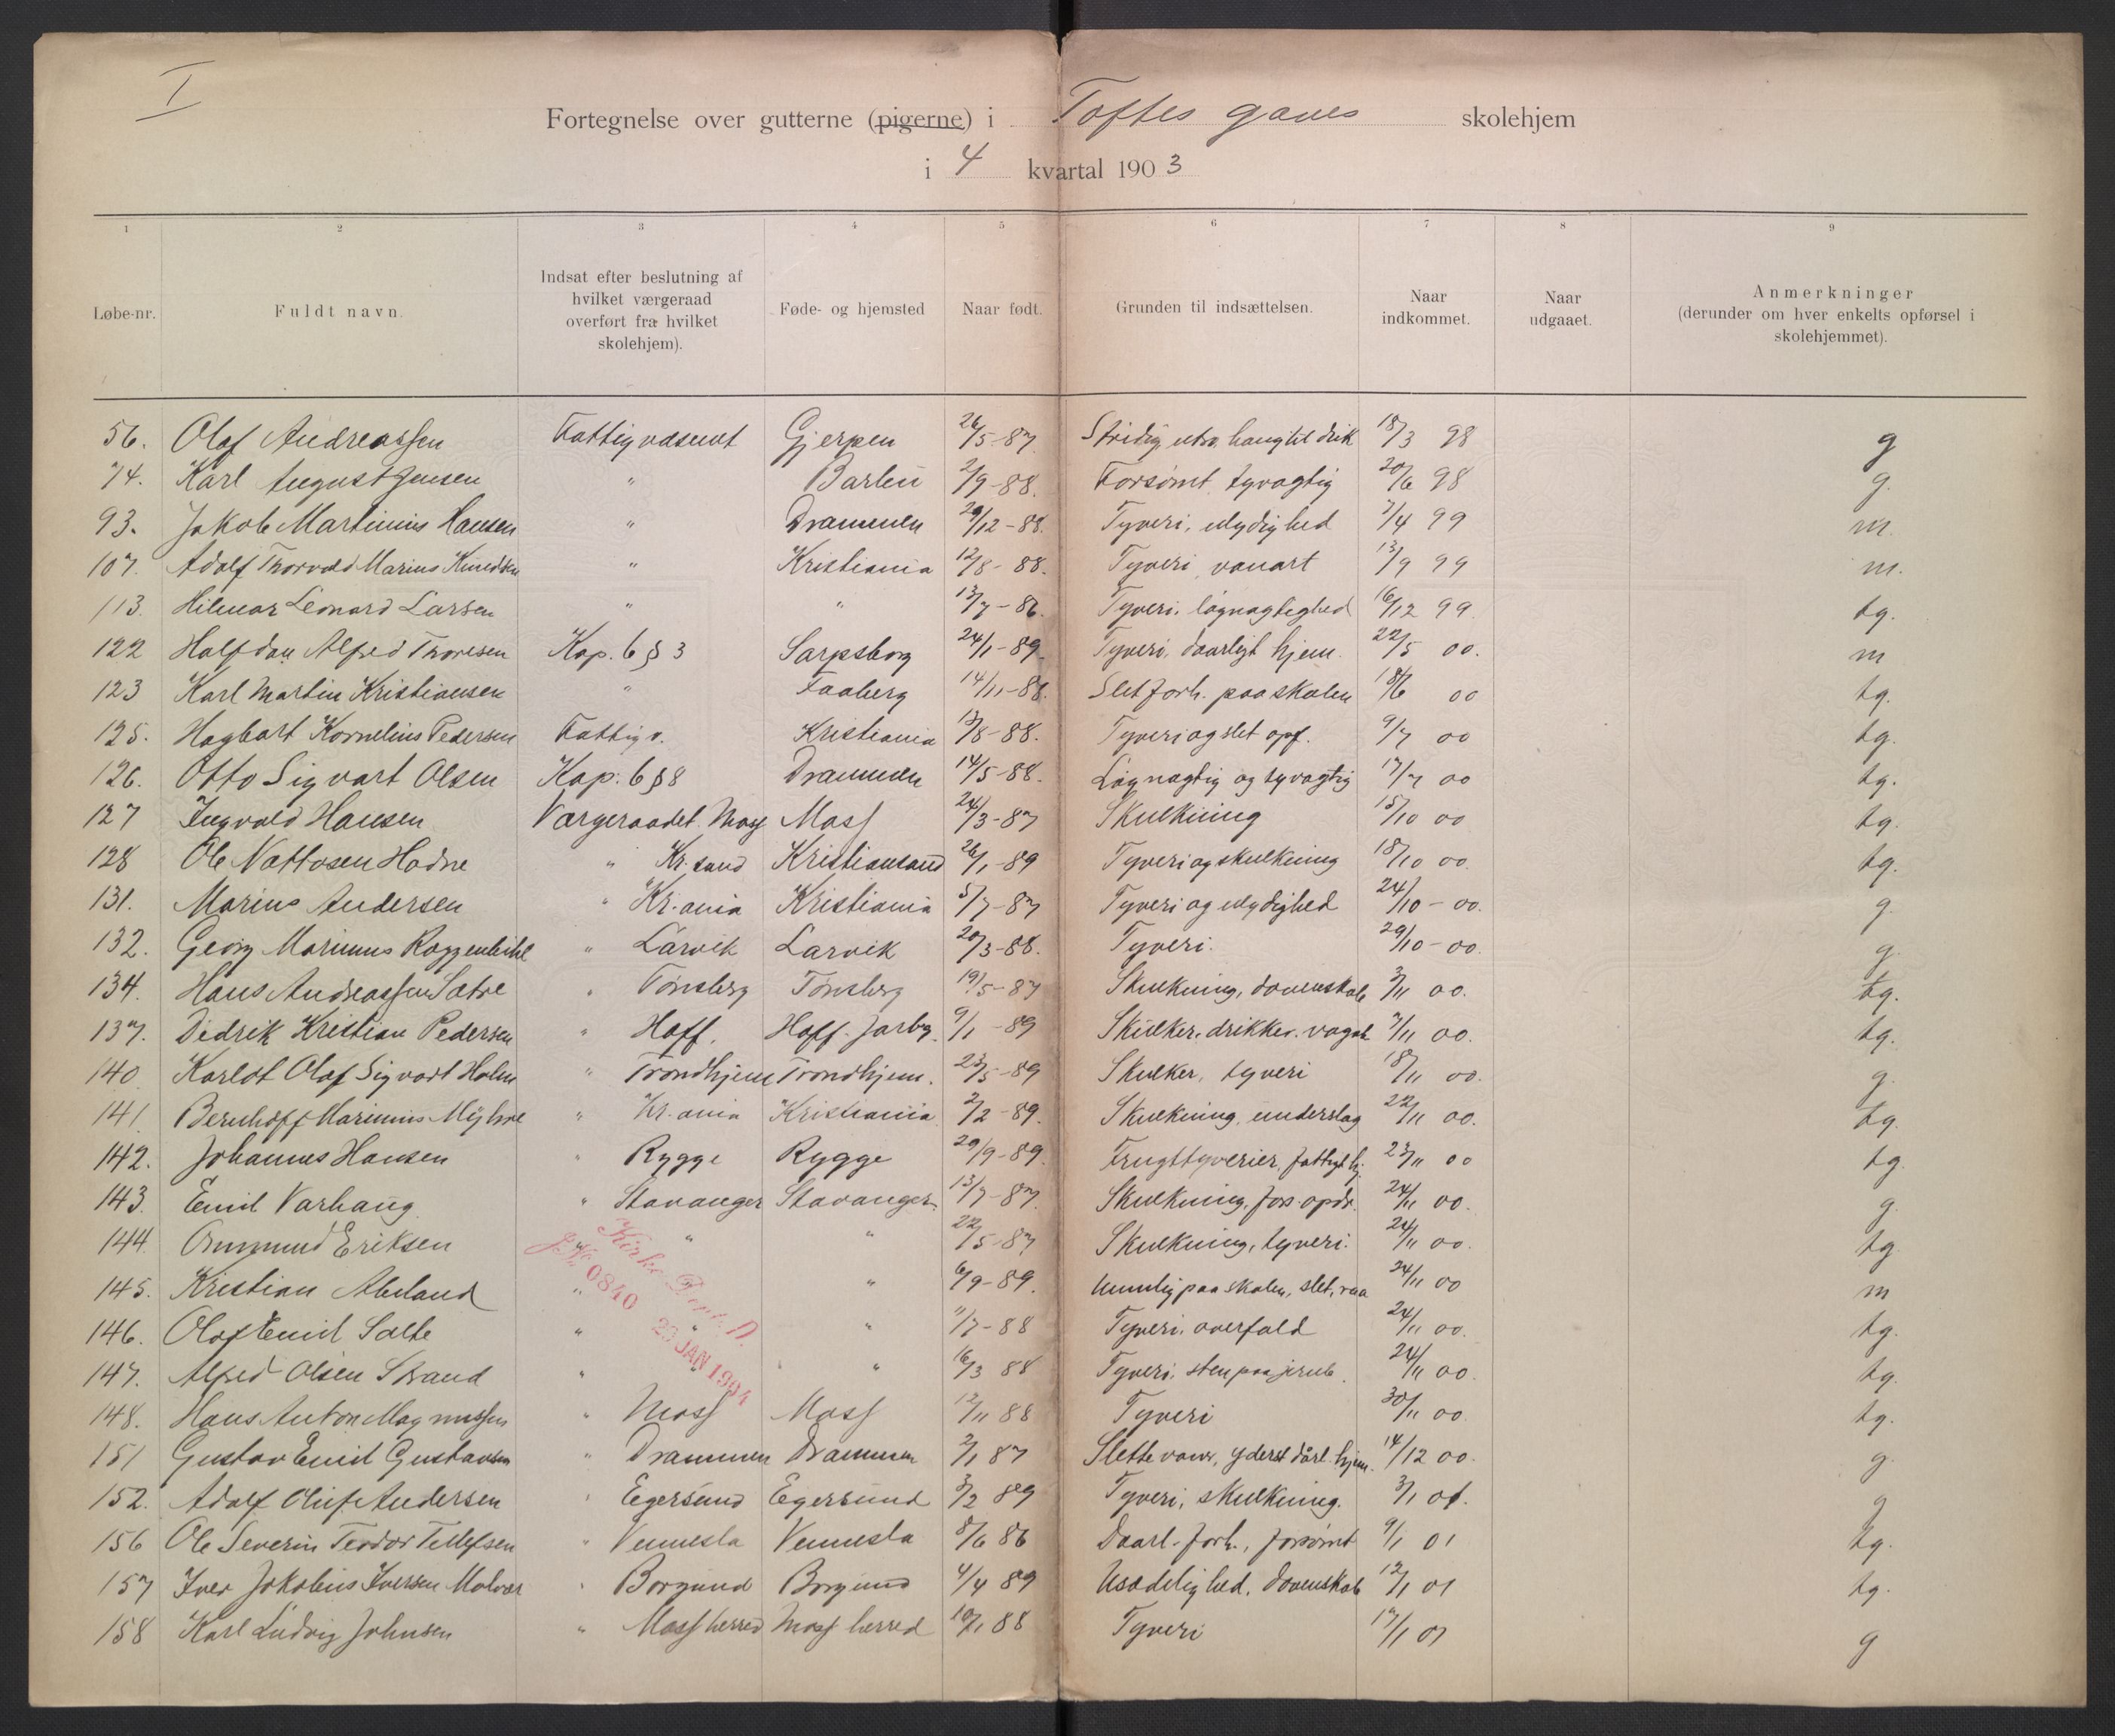 I
Fortegnelse over gutterne (pigerne) i Toftes gaves skolehjem
i 4 kvartal 1903
1 2 3 4 5 6 7 8 9
Løbe-nr. Fuldt navn. Indsat efter beslutning af hvilket værgeraad overført fra hvilket skolehjem). Føde- og hjemsted Naar født. Grunden til indsættelsen. Naar indkommet. Naar udgaaet. Anmerkninger (derunder om hver enkelts opførsel i skolehjemmet).
56. Olaf Andreassen Fattigvæsenet Gjerpen 26/5-87 Stridig, utro, hang til drik 18/3 98 g
74. Karl August Jensen " Barbu 2/9-88. Forsømt, tyvagtig 20/6 98 g.
93. Jakob Martinius Hansen " Drammen 29/12-88. Tyveri, ulydighed 7/4 99 m.
107. Adolf Thorvald Marius Knudsen " Kristiania 12/8-88. Tyveri, vanart 13/9 99 m.
113. Hilmar Leonard Larsen " " 13/7-86. Tyveri, løgnagtighed 16/12 99. tg.
122 Halfdan Alfred Thoresen Kap. 6 § 3 Sarpsborg 24/1-89. Tyveri, daarligt hjem. 22/5 00. m
123 Karl Martin Kristiansen " Faaberg 14/11-88. Slet forh. paa skolen 18/6 00 tg.
125. Hagbart Kornelius Pedersen Fattigv. Kristiania 13/8-88. Tyveri og slet opf. 9/7 00 tg.
126. Otto Sigvart Olsen Kap. 6 § 8 Drammen 14/5-88. Løgnagtig og tyvagtig 17/7 00 tg.
127 Ingvald Hansen Værgeraadet Moss Moss 24/3-87 Skulkning 15/10 00 tg.
128 Ole Nattosen Hodne " Kr.sand Kristiansand 26/1-89 Tyveri og skulkning 18/10 00. tg.
131. Marius Andersen " Kr.ania Kristiania 5/7-87 Tyveri og ulydighed 24/10-00. g.
132. Georg Marinius " Larvik Larvik 20/3-88. Tyveri. 29/10-00. g.
134. Hans Andreassen Sætre " Tønsberg Tønsberg 19/5-87 Skulkning, dovenskab 3/11 00. tg.
137. Didrik Kristian Pedersen " Hoff. Hoff. Jarbg. 9/1-89 Skulker, drikker, vagab. 7/11 00. tg.
140. Karlot Olaf Sigvart Holm " Trondhjem Trondhjem. 23/5-89 Skulker, tyveri 18/11 00. g.
141. Bernhoff Marinius Myhre " Kr.ania Kristiania 2/2-89. Skulkning, underslag 22/11 00. tg.
142. Johannes Hansen " Rygge Rygge 29/9-89. Frugttyverier, fattigt hj. 23/11 00 tg.
143. Emil Varhaug " Stavanger Stavanger 13/7-87. Skulkning, fors. opdr. 24/11 00. g.
144. Osmund Eriksen " " " 22/5-87 Skulkning, tyveri. 24/11 00. tg
145. Kristian Abeland " " 6/9-89. Umulig paa skolen, slet, raa 24/11 00 m
146. Olaf Emil Salte " " " 11/7-88 Tyveri, overfald 24/11 00. tg.
147. Alfred Olsen Strand " " 16/3 88 Tyveri, sten paa jernb. 24/11 00. tg.
148. Hans Anton Magnussen " Moss Moss 12/11 88 Tyveri 30/11 00. tg.
151 Gustav Emil Gustavsen " Drammen Drammen 2/1 87 Slette vaner, yderst dårl. hjem. 14/12 00. g.
152. Adolf Oluf Andersen " Egersund Egersund 3/2 89 Tyveri, skulkning. 3/1 01. g
156 Ole Severin Teodor Tellefsen " Vennesla Vennesla 8/6 86 Daarl. forh., forsømt 9/1 01 tg.
157 Iver Jakobius Iversen Molvær " Borgund Borgund 4/4 89 Usædelighed, dovenskab 12/1 01 tg.
158 Karl Ludvig Johnsen " Moss herred Moss herred 10/1 88 Tyveri 17/1 01 g
Kirke Dept. D.
J.No. 0840 23 JAN 1904